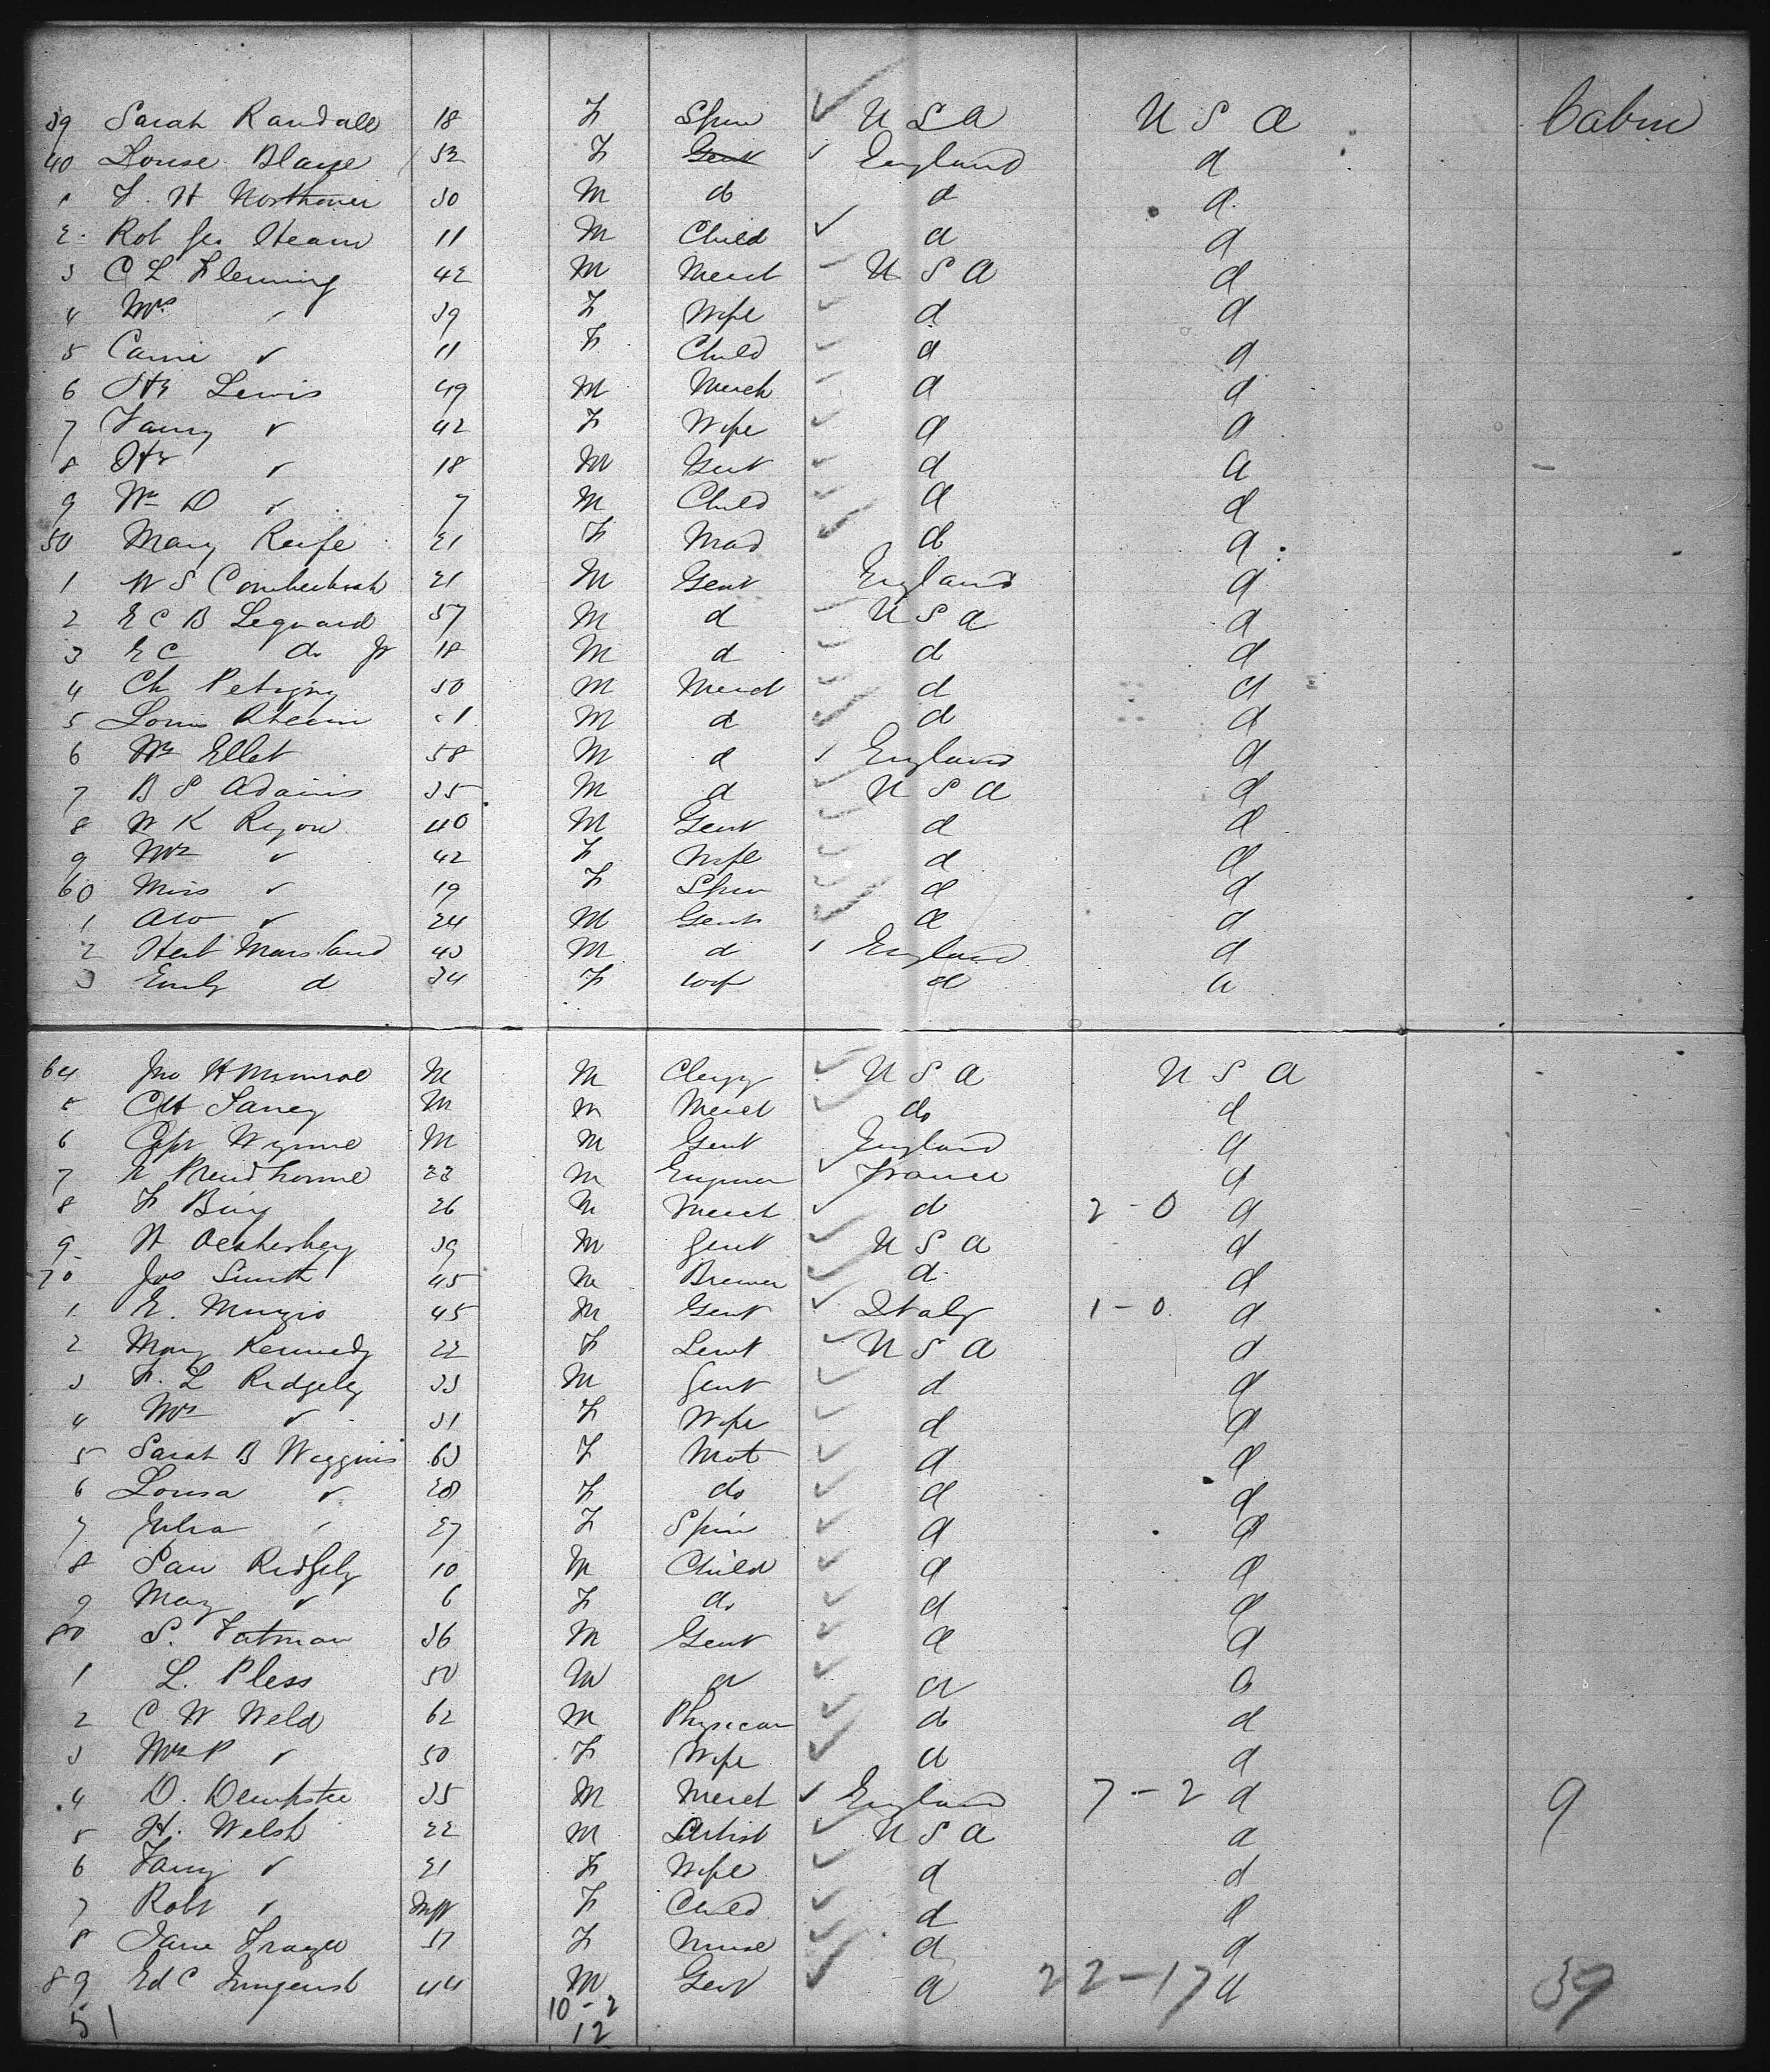 39 Sarah Randall 18 F Spin U S A U S A Cabin
40 Louise Blaye 52 F Gent England d
1 F. H Northover 30 M do d d
2 Rob Geo Steam 11 M Child d d
3 C L Fleming 42 M Merct U S A d
4 Mrs " 39 F Wife d d
5 Carrie " 11 F Child d d
6 Hy Lewis 49 M Merch d d
7 Fanny " 42 F Wife d d
8 Hy " 18 M Gent d d
9 Wm D " 7 M Child d d
50 Mary Reife 21 F Mad do d
1 W S 21 M Gent England d
2 E C B Leguard 57 M d U S A d
3 E C do Jr 18 M d d d
4 Ch Petigny 50 M Merct d d
5 Louis Rheim M d d d
6 Wm Ellet 58 M d England d
7 B S Adams 35 M d U S A d
8 W K Ryon 40 M Gent d d
9 Mrs " 42 F Wife d d
60 Miss " 19 F Spin d d
1 " 24 M Gent d d
2 Herbt Marsland 43 M d England d
3 Emily d 34 F wif d d
64 Jno H Munroe M M Clergy U S A U S A
5 CH Laney M M Merct do d
6 Capt Wynne M M Gent England d
7 Prudhomme 23 M Engineer France d
8 F Bing 26 M Merct d 2-0 d
9 H Oesterberg 39 M Gent U S A d
70 Jos Smith 45 M Brewer d d
1 E. Muzio 45 M Gent Italy 1-0 d
2 Mary Kennedy 22 F Sert U S A d
3 F. L Ridgely 33 M Gent d d
4 Mrs " 31 F Wife d d
5 Sarah B Wiggins 63 F Mat d d
6 Lousa " 28 F do d d
7 Julia " 27 F Spin d d
8 Sam Ridgely 10 M Child d d
9 May " 6 F do d d
80 S. Fatman 36 M Gent d d
1 L. Pless 50 M d d d
2 C W Weld 62 M Physician do d
3 Mrs P " 50 F Wife d d
4 D. Dempster 35 M Merct England 7-2 d 9
5 H. Welsh 22 M Artist U S A d
6 Fany " 21 F Wife d d
7 Robt " Inft F Child d d
8 Jane Frazer 37 F Nurse d d
89 Ed C 44 M Gent d 22-17 d 39
51 10-2
12